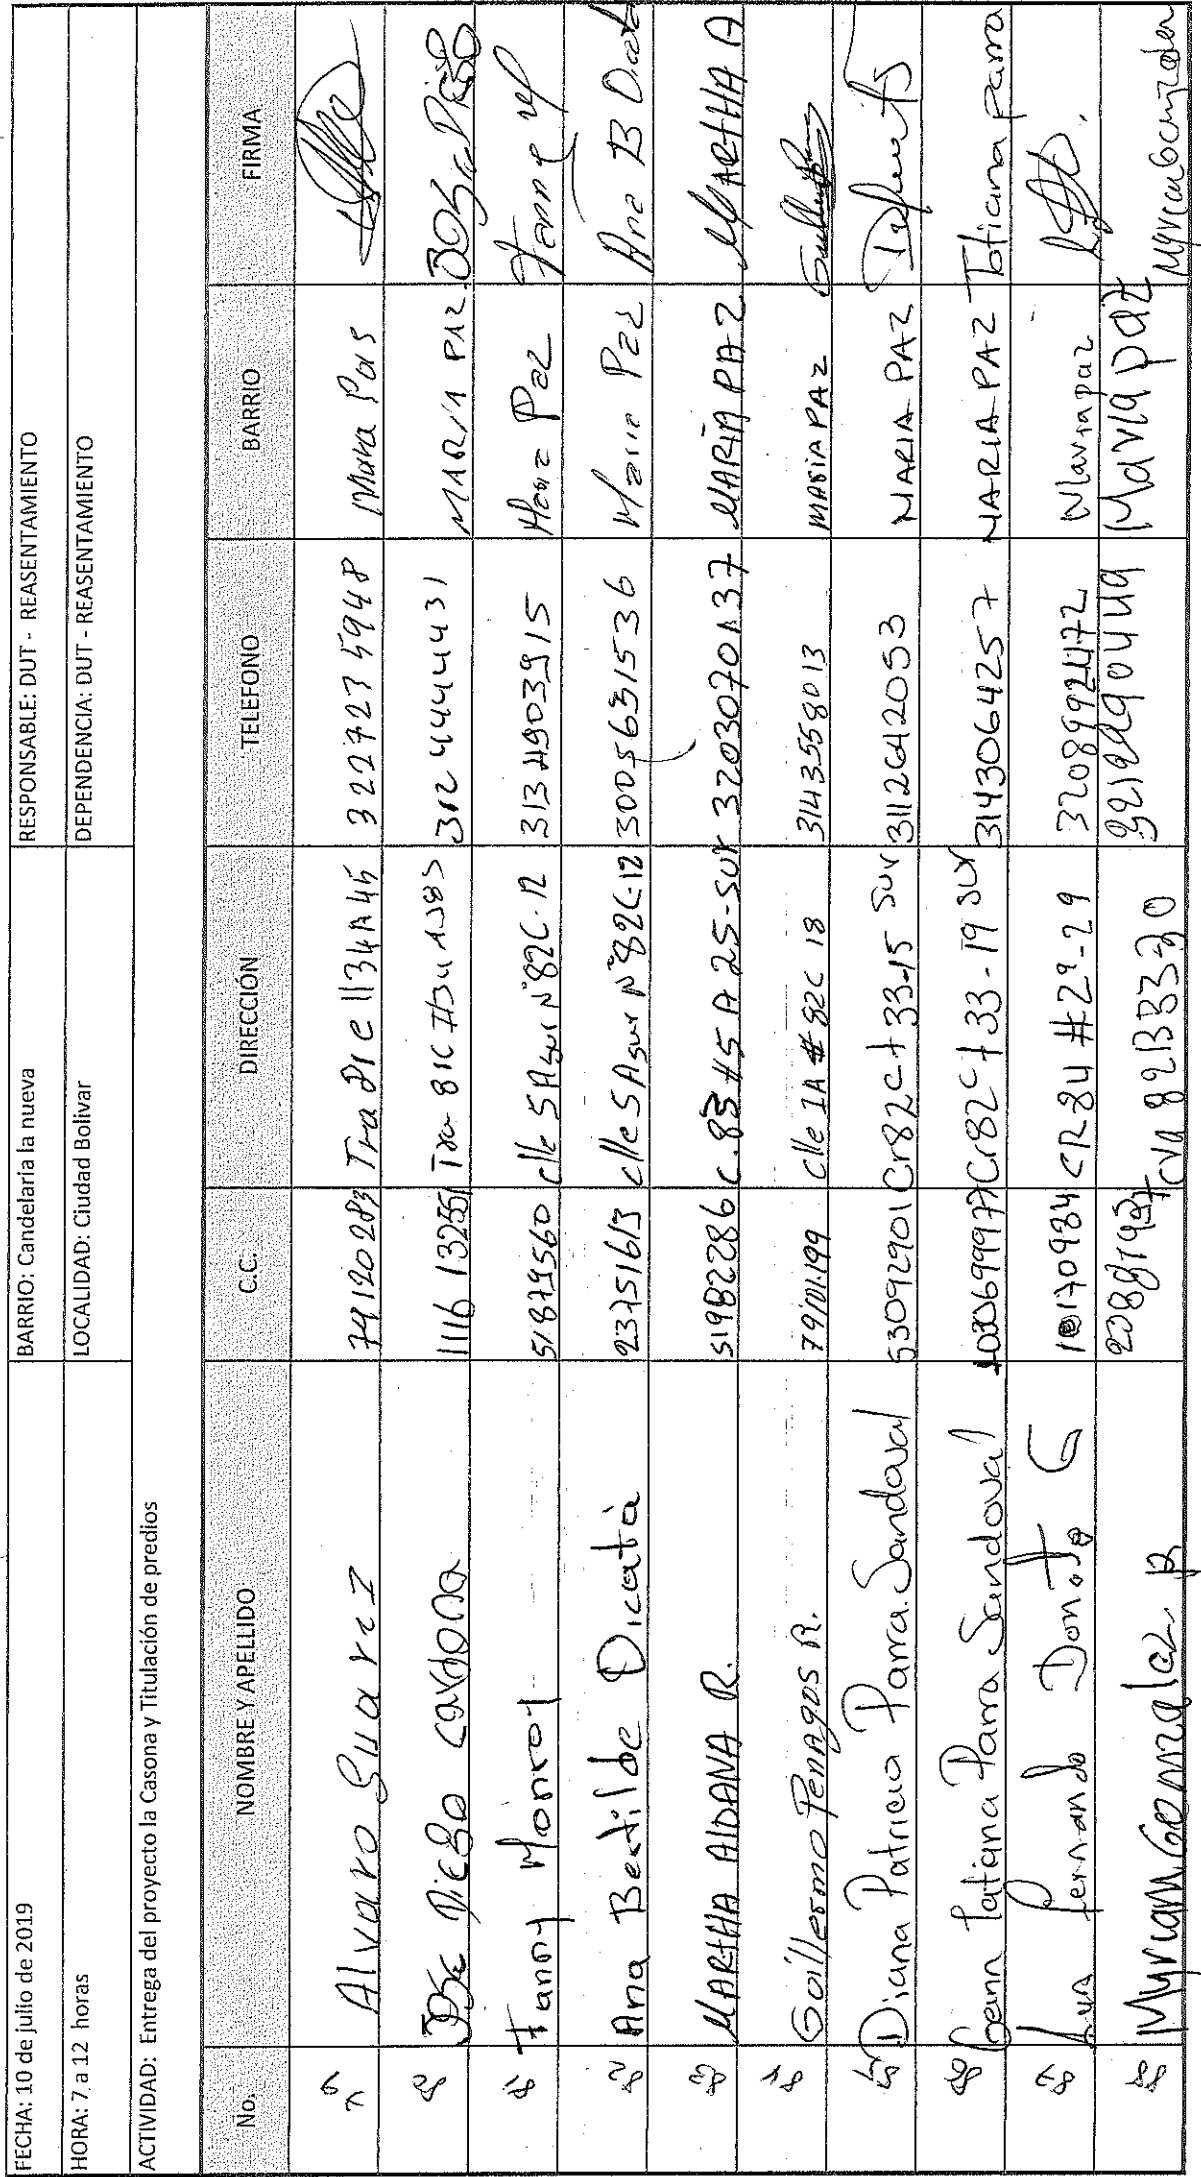 FECHA: 10 de julio de 2019 BARRIO: Candelaria la nueva RESPONSABLE: DUT - REASENTAMIENTO
HORA: 7 a 12 horas LOCALIDAD: Ciudad Bolivar DEPENDENCIA: DUT - REASENTAMIENTO
ACTIVIDAD: Entrega del proyecto la Casona y Titulación de predios
No. NOMBRE Y APELLIDO C.C. DIRECCIÓN TELEFONO BARRIO FIRMA
79 Alvaro Suarez 79120283 3227235948
80 José Diego Cardona 1116 13255 3124444431 MARIA PAZ
81 Fanny Monroy 51879560 clle 5 A sur N°82C-12 3134903915 Maria Paz Fanny
82 Ana Bertilde Dicatá 23751613 clle 5 A sur N°82C-12 3005631536 Maria Paz Ana B Dicata
83 MARTHA ALDANA R. 51982286 C. 83 #5 A 25-sur 3203070137 MARIA PAZ MARTHA A
84 Guillermo PENAGOS R. 79101199 clle 1A # 82C 18 3143558013 MARIA PAZ
85 Diana Patricia Parra Sandoval 53092901 Cr82C # 33-15 sur 3112642053 MARIA PAZ
86 Geann Tatiana Parra Sandoval 1030699977 Cr82C # 33-19 sur 3143064257 MARIA PAZ Tatiana parra
87 Luis fernando Donato G CR 84 # 2-29 3208992472 Maria paz
88 Myriam Gonzalez 3212490449 Maria paz